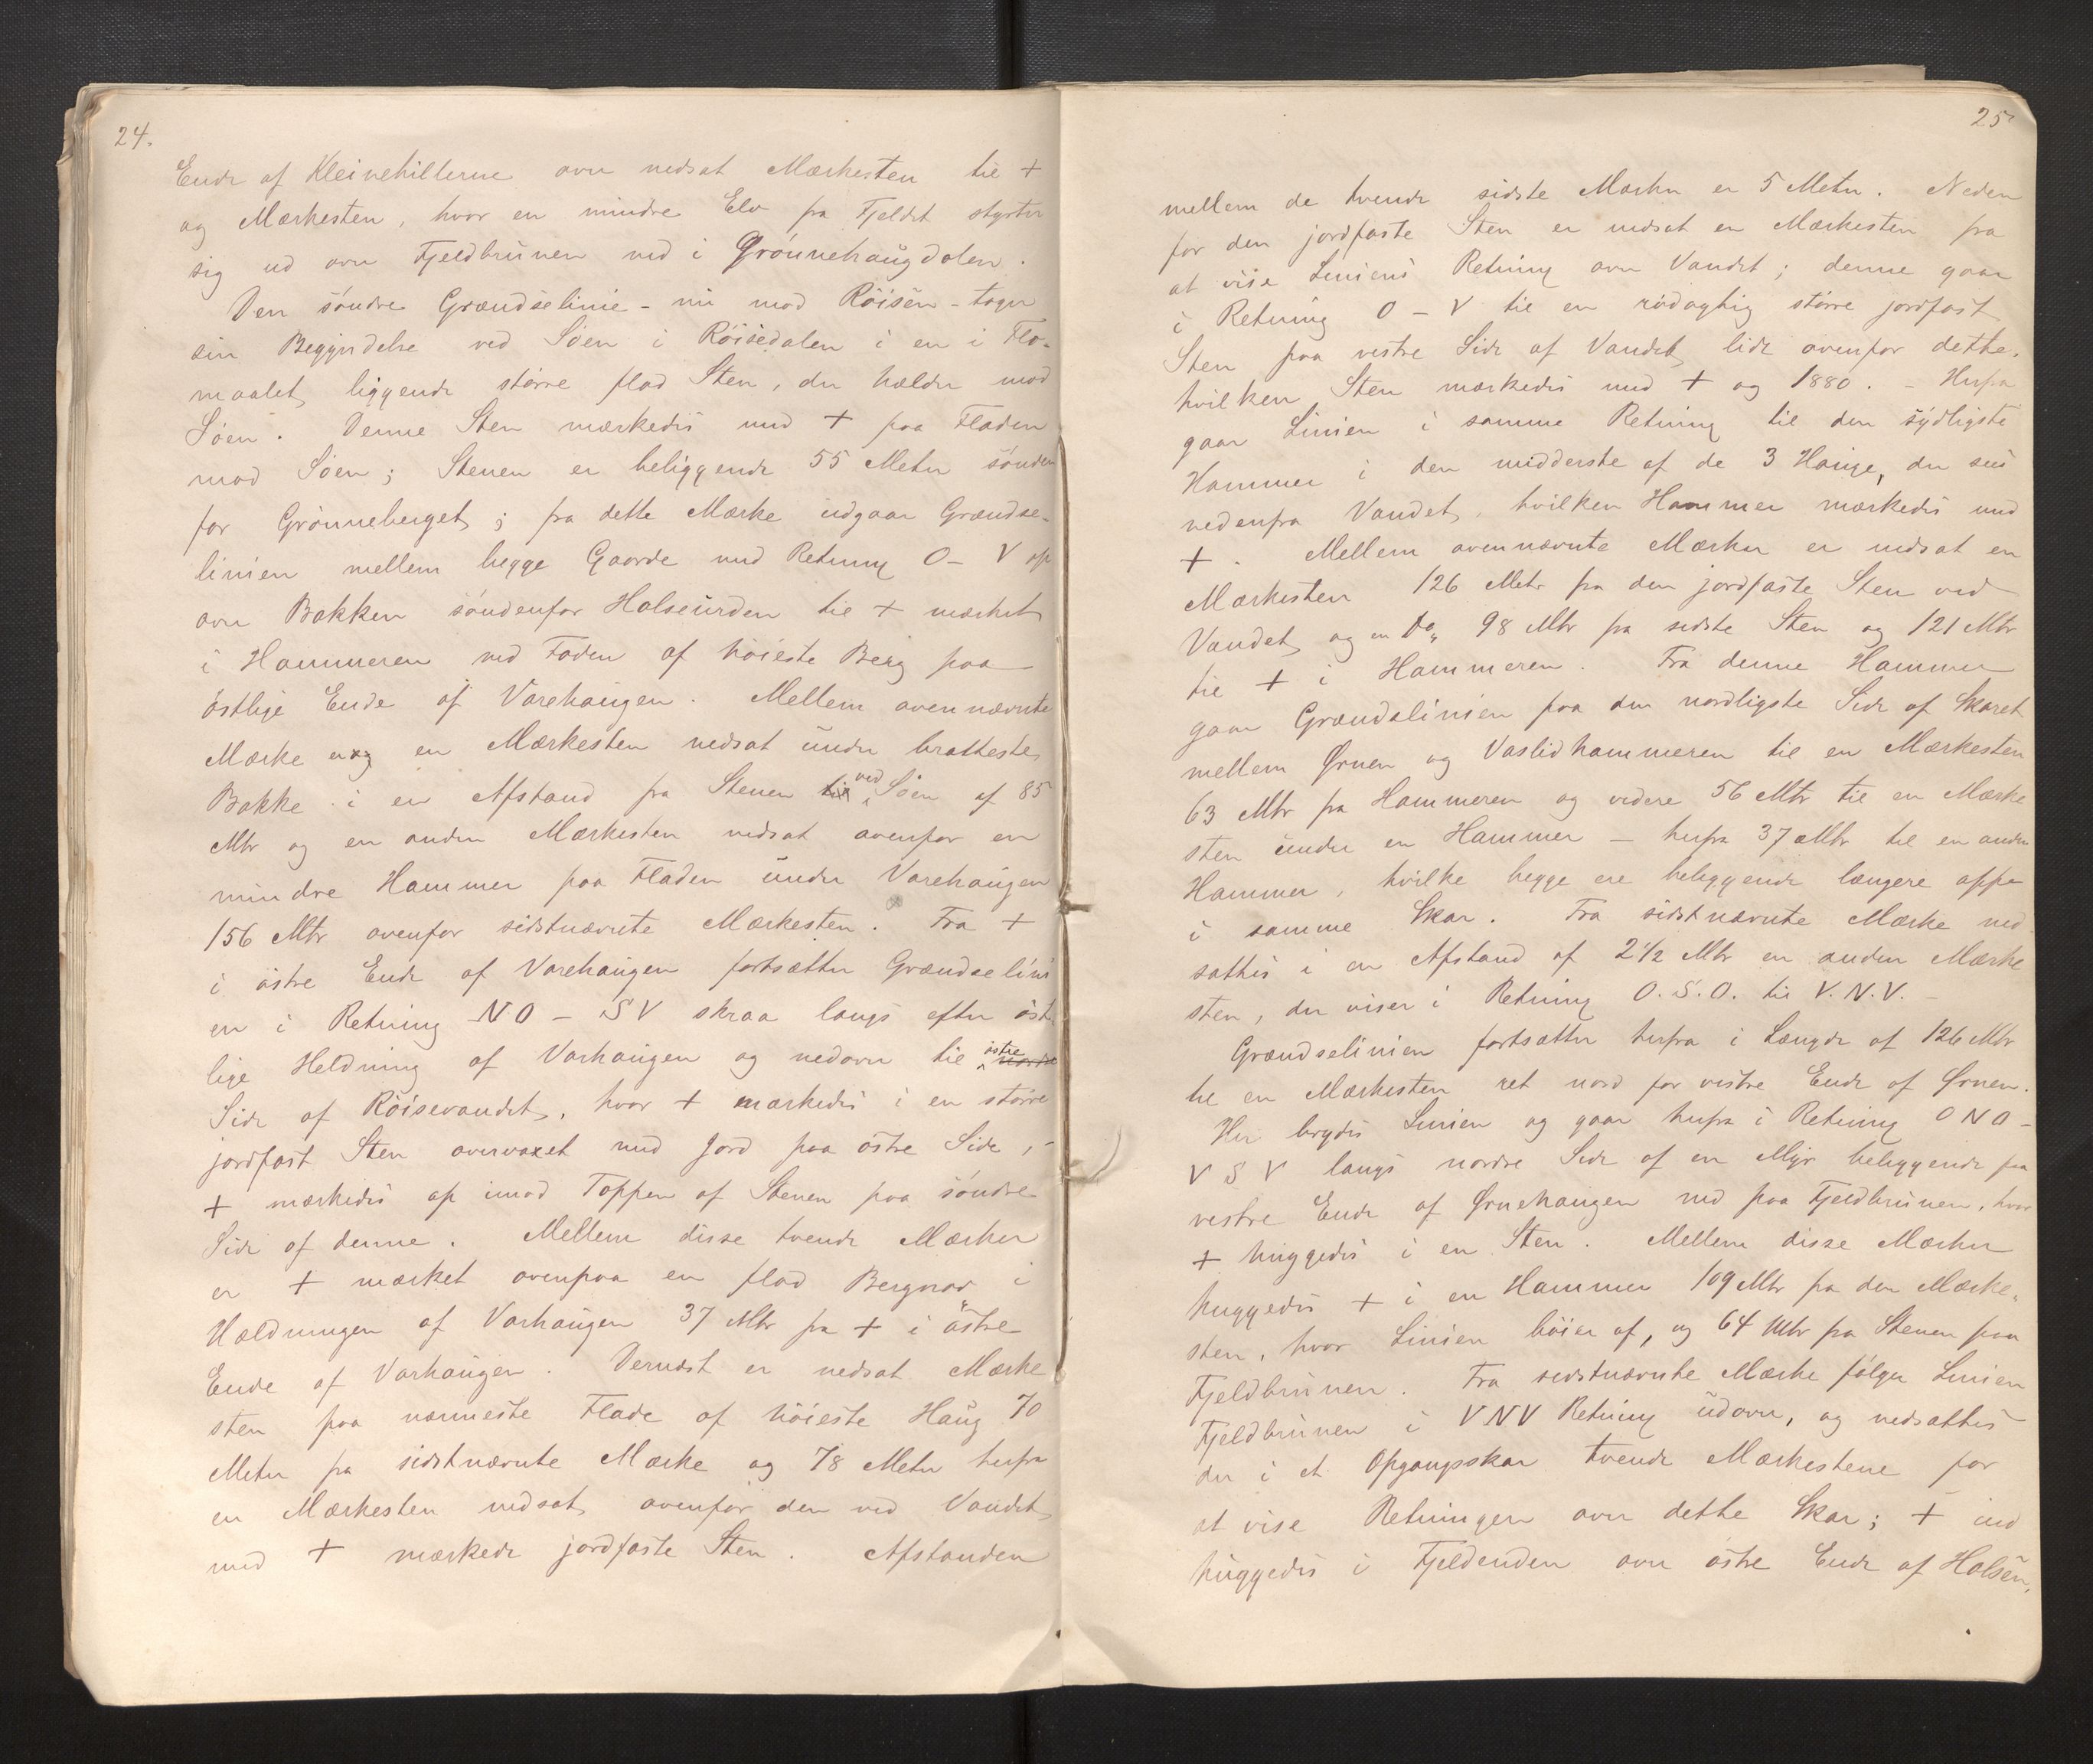 24.
Ende af Kleivehillerne over nedsat Mærkesten til +
og Mærkesten, hvor en mindre Elv fra Fjeldet styrter
sig ud over Fjeldbrunen ned i Grønnehaugdalen.
Den søndre Grændselinie – nu mod Röisen – tager
sin Begyndelse ved Söen i Röisedalen i en i Flo-
maalet liggende större flad Sten, der hælder mod
Söen. Denne Sten mærkedes med + paa Fladen
mod Söen; Stenen er beliggende 55 Meter sönden
for Grönneberget; fra dette Mærke udgaar Grændse-
linien mellem begge Gaarde med Retning O – V op
over Bakken söndenfor Halseurden til + mærket
i Hammeren ved Foden af höieste Berg paa
östlige Ende af Varehaugen. Mellem ovennævnte
Mærke er en Mærkesten nedsat under bratteste
Bakke i en Afstand fra Stenen ved Söen af 85
Mtr og en anden Mærkesten nedsat ovenfor en
mindre Hammer paa Fladen under Varehaugen
156 Mtr ovenfor sidstnævnte Mærkesten. Fra +
i östre Ende af Varehaugen fortsætter Grændselini
en i Retning NO – SV skraa langs efter öst
lige Heldning af Varhaugen og nedover til östre
Side af Röisevandet, hvor + mærkedes i en större
jordfast Sten overvoxet med Jord paa östre Side, –
+ mærkedes op imod Toppen af Stenen paa söndre
Side af denne. Mellem disse tvende Mærker
er + mærket ovenpaa en flad Bergnov i
Hældningen af Varhaugen 37 Mtr fra + i östre
Ende af Varhaugen. Dernæst er nedsat Mærke
sten paa nærmeste Flade af höieste Haug 70
Meter fra sidstnævnte Mærke og 78 Meter herfra
en Mærkesten nedsat ovenfor den ved Vandet
med + mærkede jordfaste Sten. Afstanden
25
mellem de tvende sidste Mærker er 5 Meter. Neden
for den jordfaste Sten er nedsat en Mærkesten for
at vise Liniens Retning over Vandet; denne gaar
i Retning O – V til en rödagtig större jordfast
Sten paa vestre Side af Vandet, lidt ovenfor dette.
hvilken Sten mærkedes med + og 1880. – Herfra
gaar Linien i samme Retning til den sydligste
Hammer i den midderste af de 3 Hauge, der sees
nedenfra Vandet, hvilken Hammer mærkedes med
+. Mellem ovennævnte Mærker er nedsat en
Mærkesten 126 Mtr fra den jordfaste Sten ved
Vandet og en do 98 Mtr fra sidste Sten og 121 Mtr
til + i Hammeren. Fra denne Hammer
gaar Grændselinien paa den nordligste Side af Skaret
mellem Ørnen og Vaslidhammeren til en Mærkesten
63 Mtr fra Hammeren og videre 56 Mtr til en Mærke
sten under en Hammer – herfra 37 Mtr til en anden
Hammer, hvilke begge ere beliggende længere oppe
i samme Skar. Fra sidstnævnte Mærke ned
sattes i en Afstand af 2½ Mtr en anden Mærke
sten, der viser i Retning O.S.O. til V.N.V. –
Grændselinien fortsætter herfra i Længde af 126 Mtr
til en Mærkesten ret nord for vestre Ende af Ørnen.
Her brydes Linien og gaar herfra i Retning ONO –
VSV langs nordre Side af en Myr beliggende paa
vestre Ende af Ørnehaugen ned paa Fjeldbrunen, hvor
+ huggedes i en Sten. Mellem disse Mærker
huggedes + i en Hammer 109 Mtr fra den Mærke-
sten, hvor Linien böier af, og 64 Mtr fra Stenen paa
Fjeldbrunen. Fra sidstnævnte Mærke fölger Linien
Fjeldbrunen i VNV Retning udover, og nedsattes
der i et Opgangsskar tvende Mærkestene for
at vise Retningen over dette Skar; + ind
huggedes i Fjeldenden over östre Ende af Halsen,